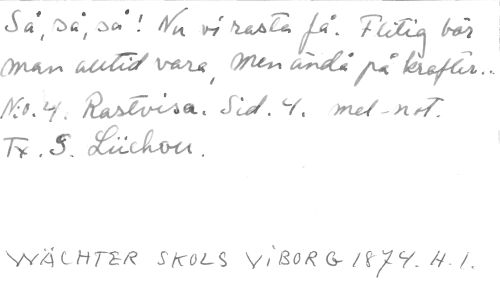 Så, så, så! Nu vi rasta få. Flitig bör
man alltid vara, men ändå på krafter..
N:o. 4. Rastvisa. Sid. 4. mel-not.
Tx. S. Lüchou.
WÄCHTER SKOLS VIBORG 1874. H. 1.